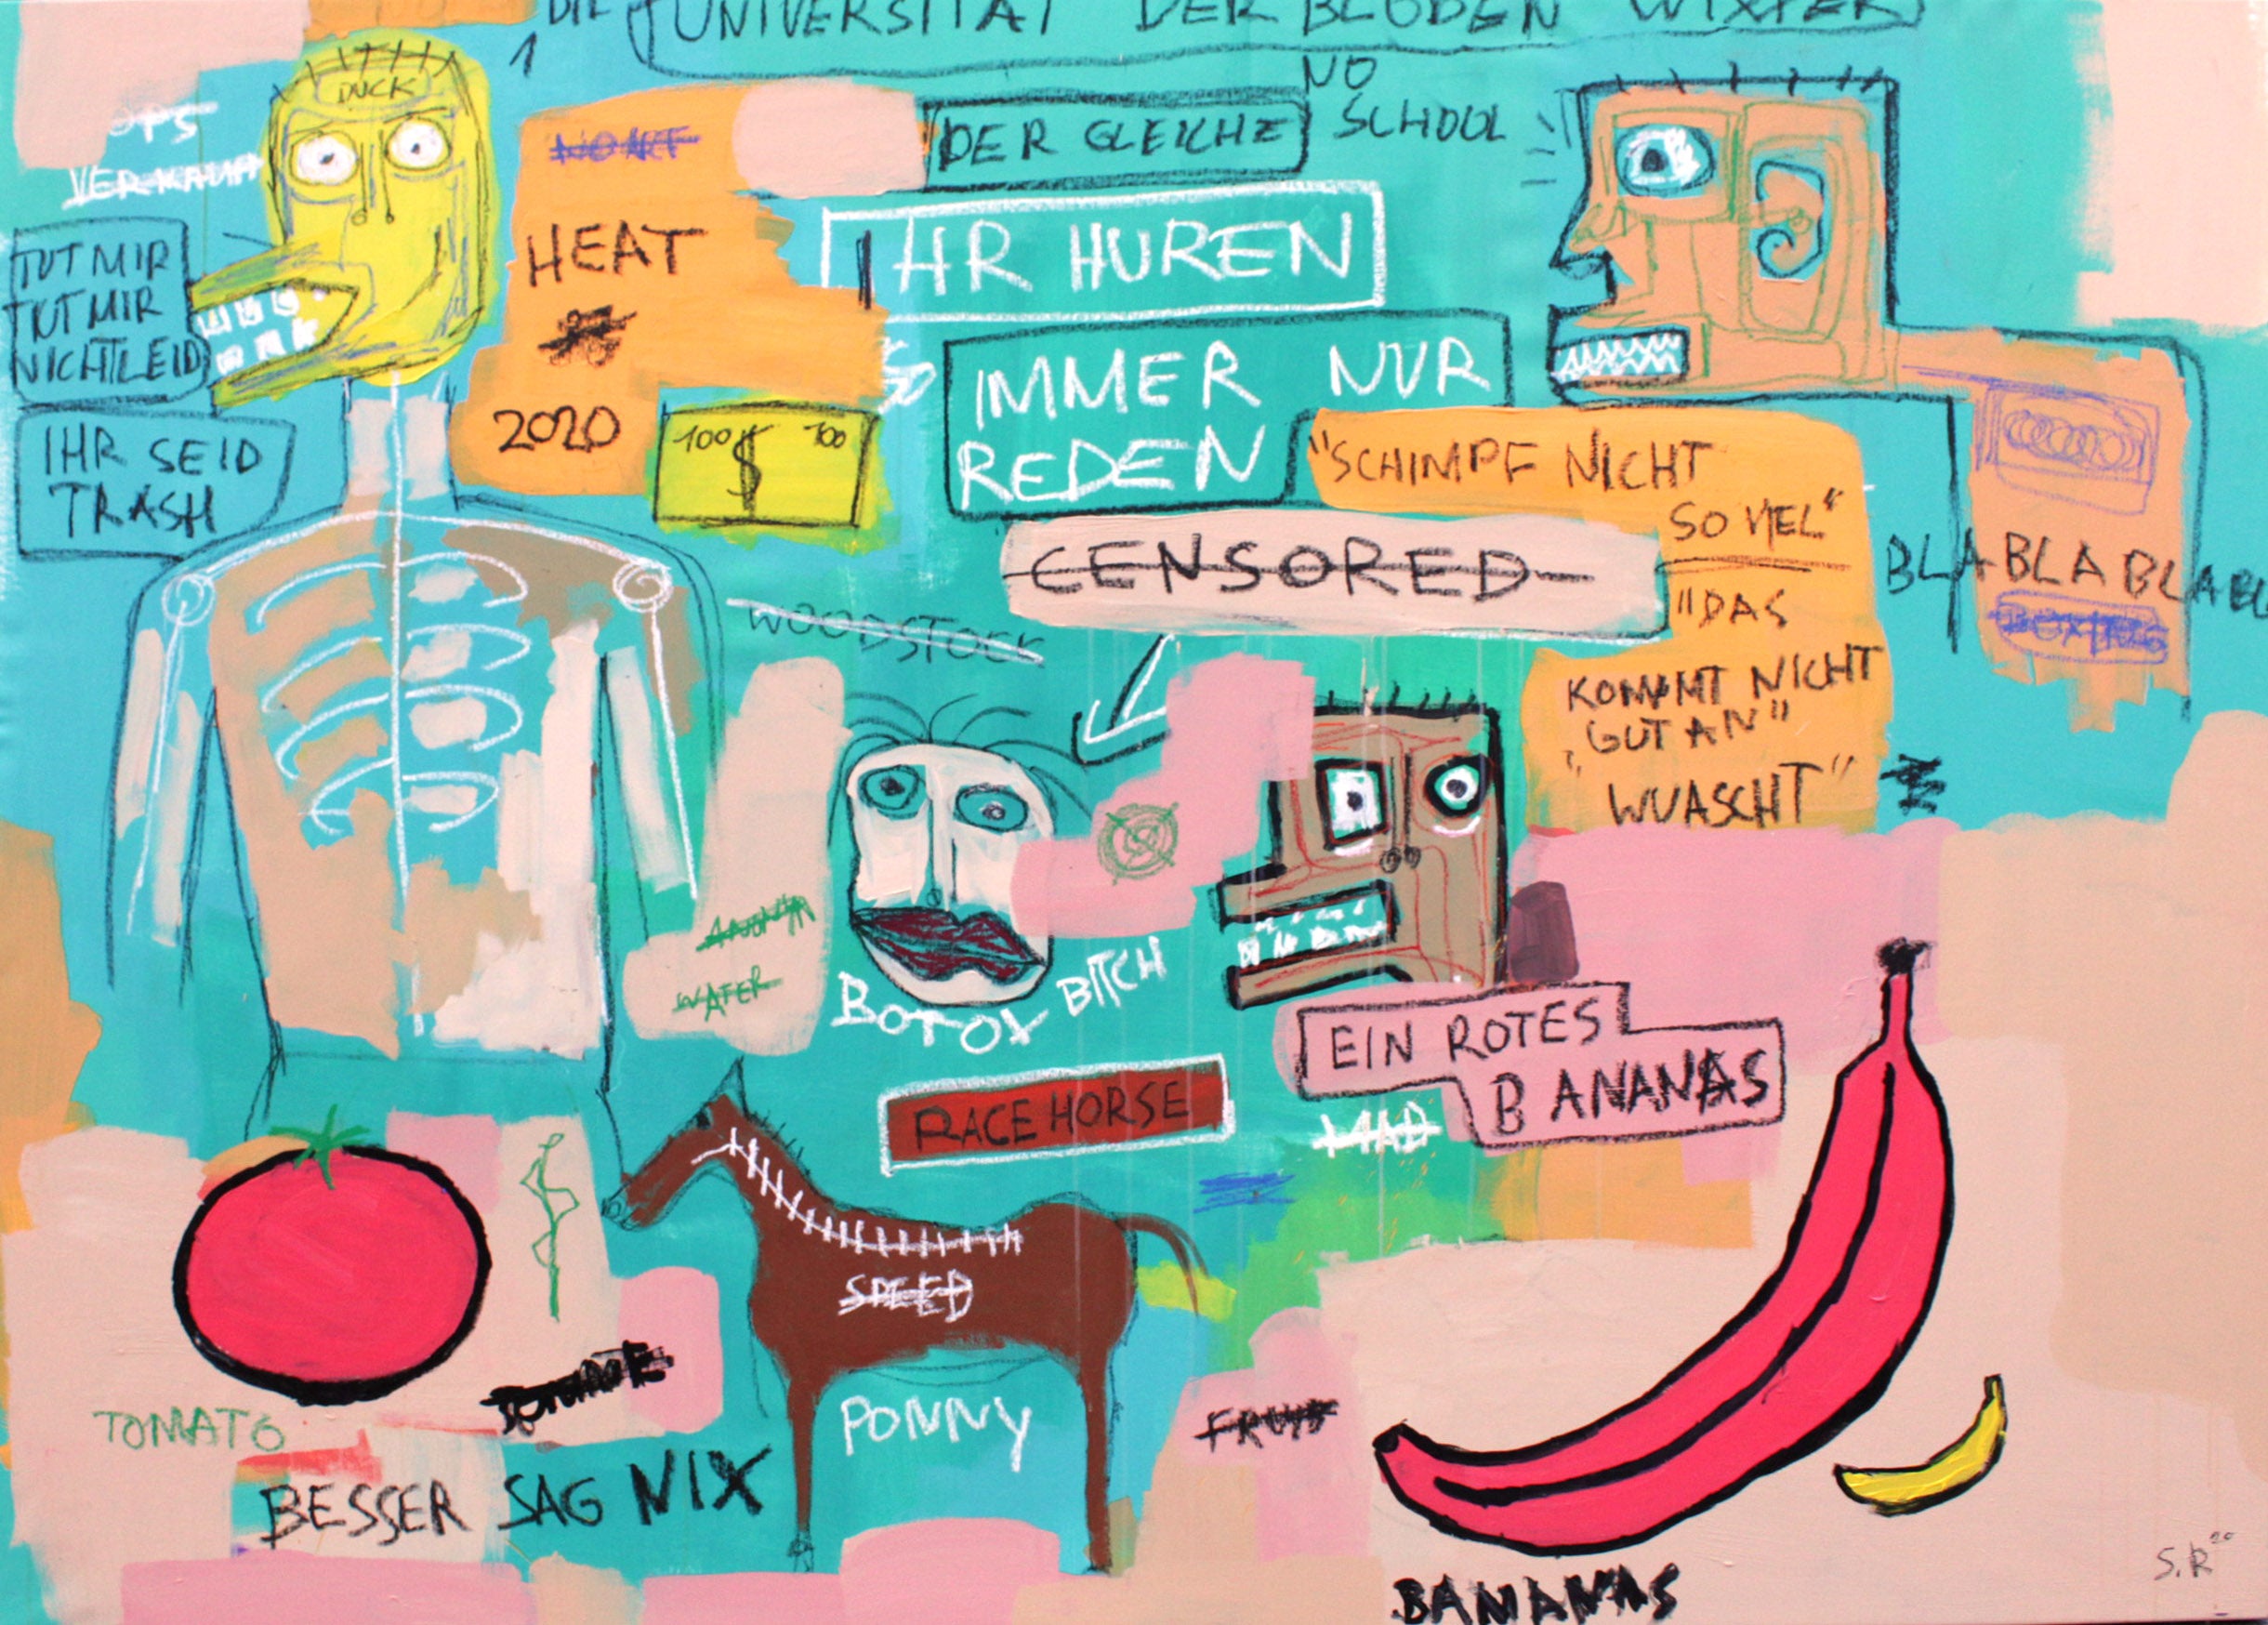 DIE UNIVERSITÄT DER BLÖDEN WIXXER
1
DUCK
OPS
VERKAUF
NO
SCHOOL
DER GLEICHE
HEAT
IHR HUREN
TUT MIR
TUT MIR
NICHT LEID
IHR SEID
TRASH
2020
100 $ 100
SO
IMMER NUR
REDEN
"SCHIMPF NICHT
SO VIEL"
CENSORED
"DAS
KOMMT NICHT
"GUT AN"
"WUASCHT"
BLABLABLABL
BOXING
WOODSTOCK
WATER
BOTOX BITCH
EIN ROTES
BANANAS
RACE HORSE
MAD
SPEED
TOMATO
PONNY
FRUIT
BESSER SAG NIX
BANANAS
S.R 20